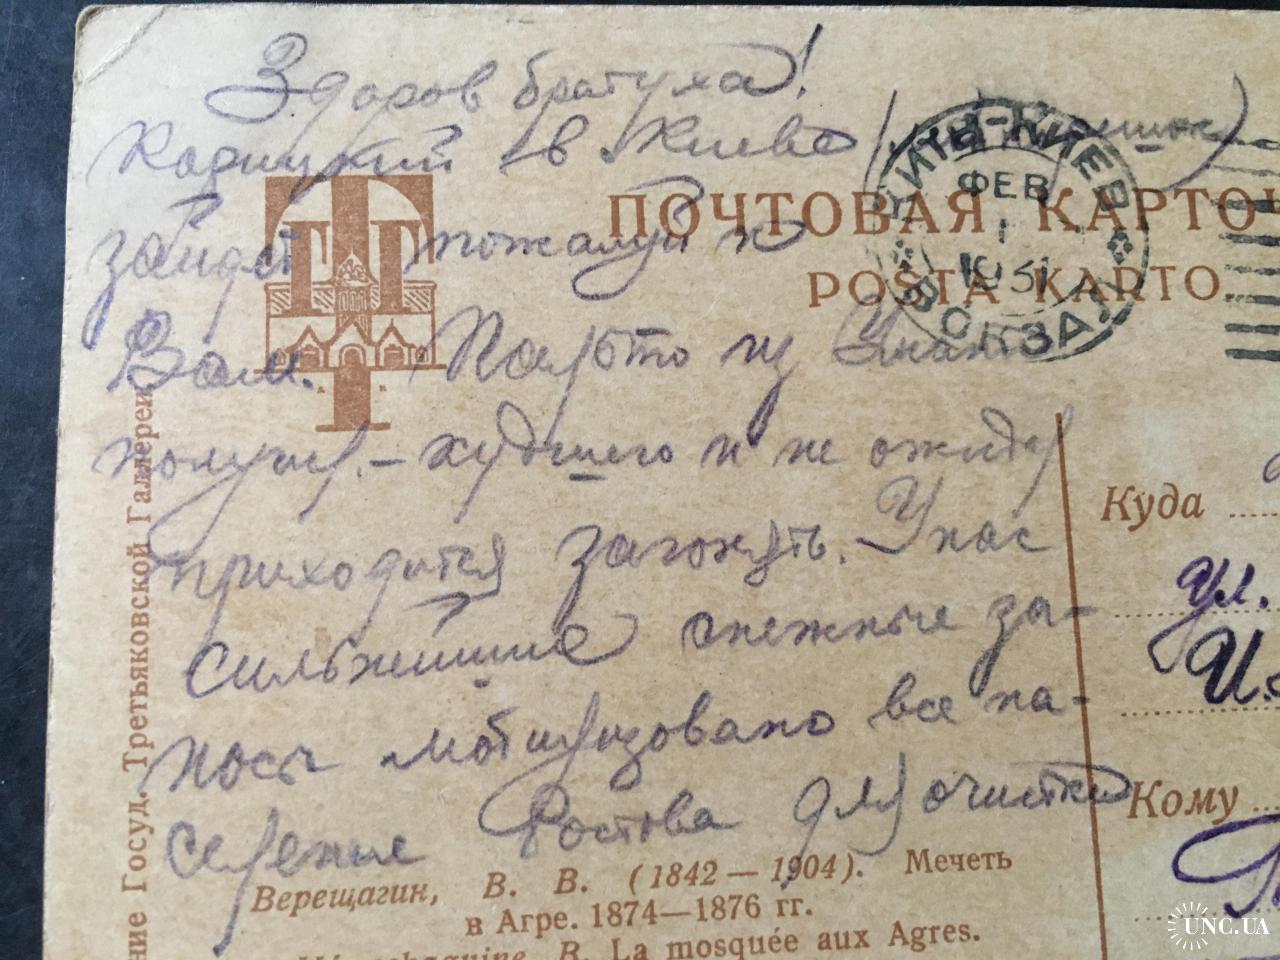 Здоров братуха!
в Киеве
зайдет пожалуй к
Вам. Пальто из
получил. – худшего и не ожидал
приходится загонять. У нас
сильнейшие снежные за-
носы мобилизовано все на-
селенье Ростова для очистки
ПОЧТОВАЯ КАРТОЧ
POŜTA KARTO.
КИЕВ
ФЕВ
1
1931
ВОКЗАЛ
ТТГ
ние Госуд. Третьяковской Галлереи
Куда
ул.
Кому
Верещагин, В. В. (1842—1904). Мечеть
в Агре. 1874—1876 гг.
B. La mosquée aux Agres.
UNC.UA